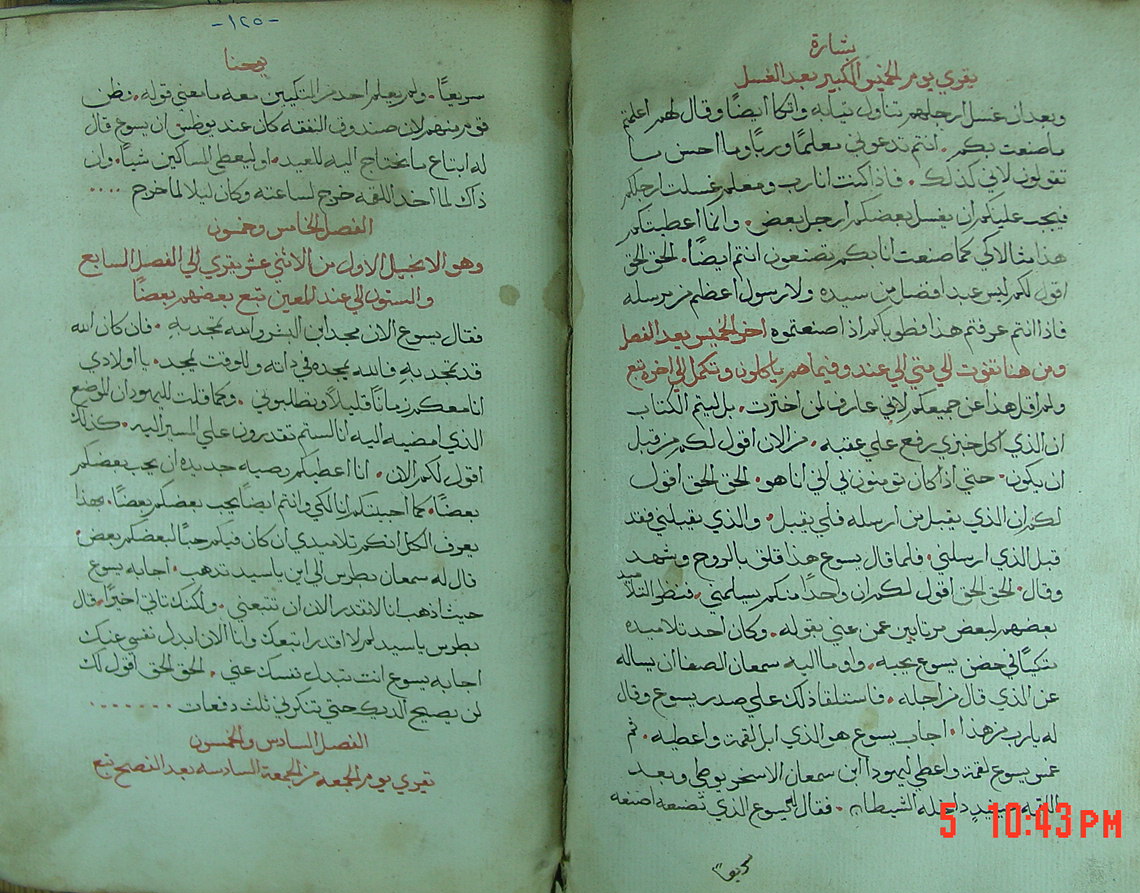 بشارة
يقري يوم الخميس الكبير بعد الغسل
وبعد ان غسل ارجلهم تناول ثيابه واتكا ايضًا وقال لهم اعلمتم
ماصنعت بكم. انتم تدعوني معلمًا وربًا وما احسن ما
تقولون لاني كذلك. فاذا كنت انا رب ومعلم غسلت ارجلكم
فيجب عليكم ان يغسل بعضكم ارجل بعض. وانما اعطيتكم
هذا مثالا كي كما صنعت انا بكم تصنعون انتم ايضًا. الحق الحق
اقول لكم ليس عبد افضل من سيده ولا رسول اعظم من مرسله
فاذا انتم عرفتم هذا فطوباكم اذا صنعتموه اخر الخميس بعد الغسل
ومن هنا تفوت الي متي الي عند وفيما هم ياكلون وتكمل الي اخره تبع
ولم اقل هذا عن جميعكم لاني عارف لمن اخترت. بل ليتم الكتاب
ان الذي اكل خبزي رفع علي عقبه. من الان اقول لكم من قبل
ان يكون. حتي اذا كان تومنون بي اني انا هو. الحق الحق اقول
لكم ان الذي يقبل من ارسله فلي يقبل. والذي يقبلني فقد
قبل الذي ارسلني. فلما قال يسوع هذا قلق بالروح وشهد
وقال. الحق الحق اقول لكم ان واحدًا منكم يسلمني. فنظر التلاميد
بعضهم لبعض مرتابين عمن عني بقوله. وكان احد تلاميده
متكيًا في حضن يسوع يحبه. واوما اليه سمعان الصفا ان يساله
عن الذي قال من اجله. فاستلقا ذلك علي صدر يسوع وقال
له يارب من هذا. اجاب يسوع هو الذي ابل لقمة واعطيه. ثم
غمس يسوع لقمة واعطي ليهودا ابن سمعان الاسخريوطي وبعد
اللقمه حينيد داخله الشيطان. فقال له يسوع الذي تصنعه اصنعه
سريعًا
-١٢٥-
يوحنا
سريعًا. ولم يعلم احد من المتكيين معه ما معني قوله. وظن
قوم منهم لان صندوق النفقه كان عند يوطس ان يسوع قال
له ابتاع ما يحتاج اليه للعيد. او ليعطي المساكين شيًا. وان
ذاك لما اخد اللقمه خرج لساعته وكان ليلا لما خرج
الفصل الخامس وخمسون
وهو الانجيل الاول من الاثني عشر يقري الي الفصل السابع
والستون الي عند للعين تبع بعضهم بعضًا
فقال يسوع الان مجد ابن البشر والله تمجد به. فان كان الله
قد تمجد به فالله يمجده في داته وللوقت يمجد. يا اولادي
انا معكم زمانًا قليلا وتطلبوني. وكما قلت لليهود ان الموضع
الذي امضي اليه انا لستم تقدرون علي المسير اليه. كذلك
اقول لكم الان. انا اعطيكم وصيه جديده ان يحب بعضكم
بعضًا. كما احببتكم انا لكي وانتم ايضًا يحب بعضكم بعضًا. بهذا
يعرف الكل انكم تلاميدي ان كان فيكم حبًا لبعضكم بعض.
قال له سمعان بطرس الي اين يا سيد تدهب. اجابه يسوع
حيث ادهب انا لا تقدر الان ان تتبعني. ولكنك تاتي اخيرًا. قال
بطرس يا سيد لم لا اقدر اتبعك وانا الان ابدل نفسي عنك
اجابه يسوع انت تبدل نفسك عني. الحق الحق اقول لك
لن يصيح الديك حتي تنكرني ثلث دفعات
الفصل السادس والخمسون
تقري يوم الجمعه من الجمعة السادسه بعد الفصح تبع
5 10:43PM